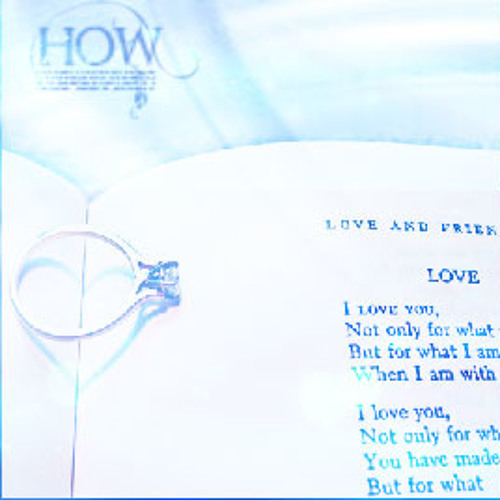 HOW
LOVE AND FRIEN
LOVE
I LOVE YOU,
Not only for what
But for what I am
When I am with
I love you,
Not only for wh
You have made
But for what